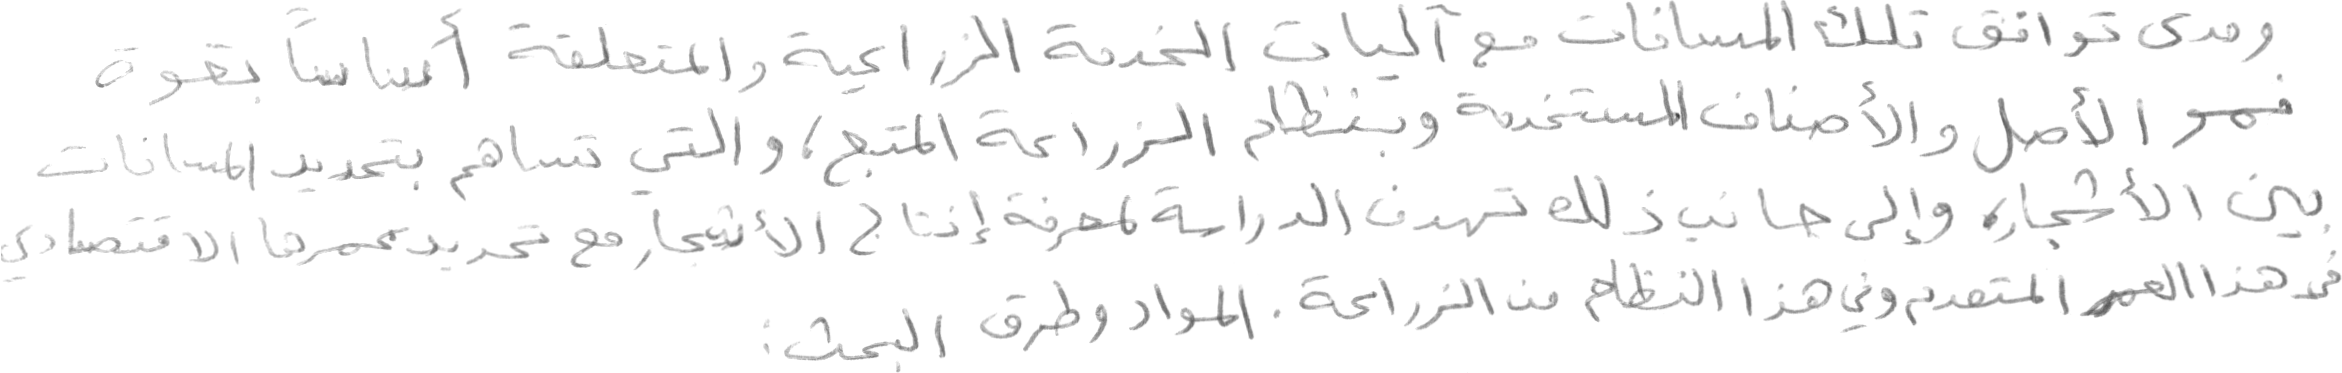 ومدى توافق تلك المسافات مع آليات الخدمة الزراعية والمتعلقة أساساً بقوة
نمو الأصل والأصناف المستخدمة وبنظام الزراعة المتبع، والتي تساهم بتحديد المسافات
بين الأشجار، وإلى جانب ذلك تهدف الدراسة لمعرفة إنتاج الأشجار مع تحديد عمرها الاقتصادي
في هذا العمر المتقدم وفي هذا النظام من الزراعة. المواد وطرق البحث: